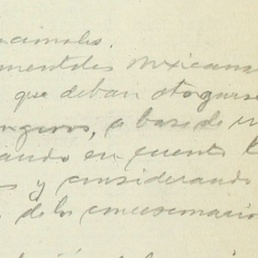 acionales.
mentales mexicana
que deban otorgarse
angeros, a base de
ando en cuenta l
s y considerando
de los concesionario